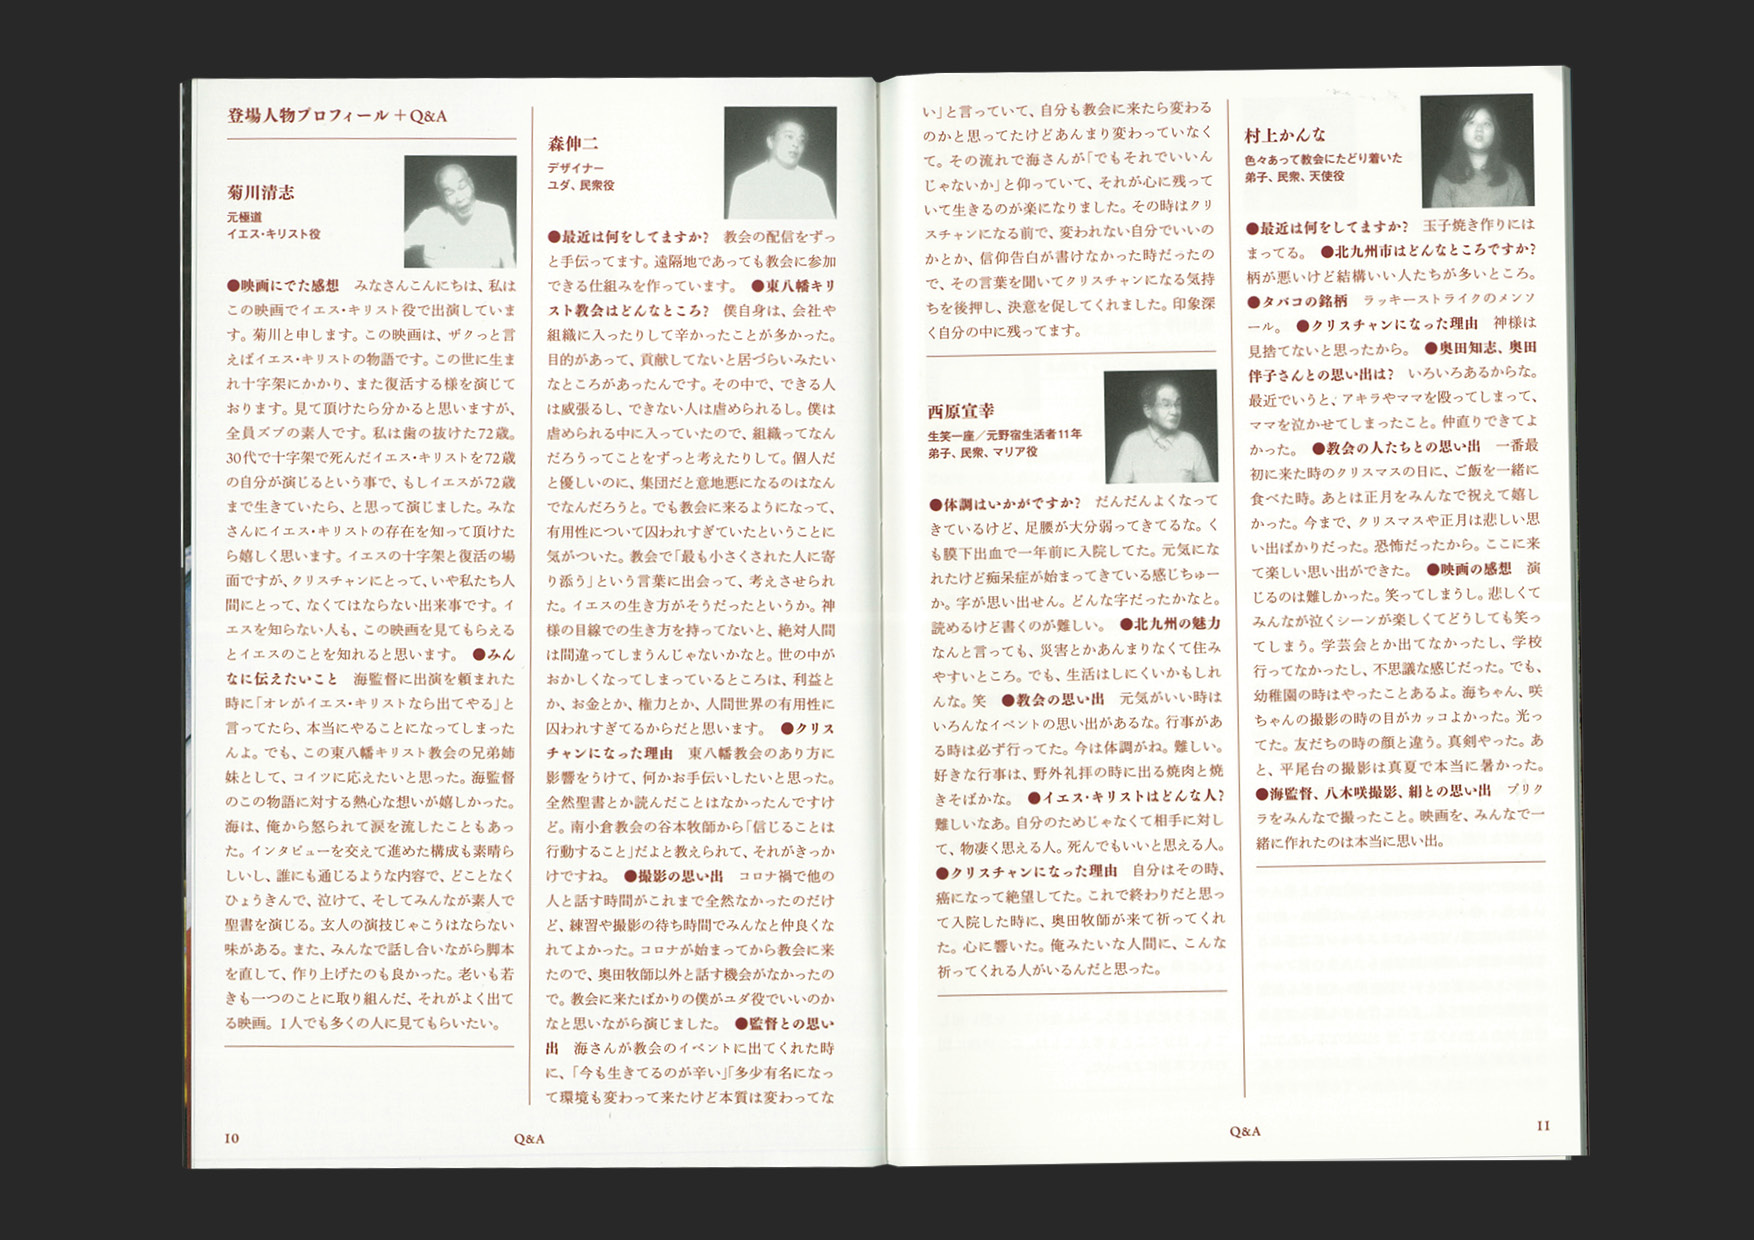 登場人物プロフィール＋Q&A
菊川清志
元極道
イエス・キリスト役
●映画にでた感想　みなさんこんにちは、私は
この映画でイエス・キリスト役で出演していま
す。菊川と申します。この映画は、ザクっと言
えばイエス・キリストの物語です。この世に生ま
れ十字架にかかり、また復活する様を演じて
おります。見て頂けたら分かると思いますが、
全員ズブの素人です。私は歯の抜けた72歳。
30代で十字架で死んだイエス・キリストを72歳
の自分が演じるという事で、もしイエスが72歳
まで生きていたら、と思って演じました。みな
さんにイエス・キリストの存在を知って頂けた
ら嬉しく思います。イエスの十字架と復活の場
面ですが、クリスチャンにとって、いや私たち人
間にとって、なくてはならない出来事です。イ
エスを知らない人も、この映画を見てもらえる
とイエスのことを知れると思います。　●みん
なに伝えたいこと　海監督に出演を頼まれた
時に「オレがイエス・キリストなら出てやる」と
言ってたら、本当にやることになってしまった
んよ。でも、この東八幡キリスト教会の兄弟姉
妹として、コイツに応えたいと思った。海監督
のこの物語に対する熱心な想いが嬉しかった。
海は、俺から怒られて涙を流したこともあっ
た。インタビューを交えて進めた構成も素晴ら
しいし、誰にも通じるような内容で、どことなく
ひょうきんで、泣けて、そしてみんなが素人で
聖書を演じる。玄人の演技じゃこうはならない
味がある。また、みんなで話し合いながら脚本
を直して、作り上げたのも良かった。老いも若
きも一つのことに取り組んだ、それがよく出て
る映画。1人でも多くの人に見てもらいたい。
森伸二
デザイナー
ユダ、民衆役
●最近は何をしてますか?　教会の配信をずっ
と手伝ってます。遠隔地であっても教会に参加
できる仕組みを作っています。　●東八幡キリ
スト教会はどんなところ?　僕自身は、会社や
組織に入ったりして辛かったことが多かった。
目的があって、貢献してないと居づらいみたい
なところがあったんです。その中で、できる人
は威張るし、できない人は虐められるし。僕は
虐められる中に入っていたので、組織ってなん
だろうってことをずっと考えたりして。個人だ
と優しいのに、集団だと意地悪になるのはなん
でなんだろうと。でも教会に来るようになって、
有用性について囚われすぎていたということに
気がついた。教会で「最も小さくされた人に寄
り添う」という言葉に出会って、考えさせられ
た。イエスの生き方がそうだったというか。神
様の目線での生き方を持ってないと、絶対人間
は間違ってしまうんじゃないかなと。世の中が
おかしくなってしまっているところは、利益と
か、お金とか、権力とか、人間世界の有用性に
囚われすぎてるからだと思います。　●クリス
チャンになった理由　東八幡教会のあり方に
影響をうけて、何かお手伝いしたいと思った。
全然聖書とか読んだことはなかったんですけ
ど。南小倉教会の谷本牧師から「信じることは
行動すること」だよと教えられて、それがきっか
けですね。　●撮影の思い出　コロナ禍で他の
人と話す時間がこれまで全然なかったのだけ
ど、練習や撮影の待ち時間でみんなと仲良くな
れてよかった。コロナが始まってから教会に来
たので、奥田牧師以外と話す機会がなかったの
で。教会に来たばかりの僕がユダ役でいいのか
なと思いながら演じました。　●監督との思い
出　海さんが教会のイベントに出てくれた時
に、「今も生きてるのが辛い」「多少有名になっ
て環境も変わって来たけど本質は変わってな
10
Q&A
い」と言っていて、自分も教会に来たら変わる
のかと思ってたけどあんまり変わっていなく
て。その流れで海さんが「でもそれでいいん
じゃないか」と仰っていて、それが心に残って
いて生きるのが楽になりました。その時はクリ
スチャンになる前で、変われない自分でいいの
かとか、信仰告白が書けなかった時だったの
で、その言葉を聞いてクリスチャンになる気持
ちを後押し、決意を促してくれました。印象深
く自分の中に残ってます。
西原宣幸
生笑一座／元野宿生活者11年
弟子、民衆、マリア役
●体調はいかがですか?　だんだんよくなって
きているけど、足腰が大分弱ってきてるな。く
も膜下出血で一年前に入院してた。元気にな
れたけど痴呆症が始まってきている感じちゅー
か。字が思い出せん。どんな字だったかなと。
読めるけど書くのが難しい。　●北九州の魅力
なんと言っても、災害とかあんまりなくて住み
やすいところ。でも、生活はしにくいかもしれ
んな。笑　●教会の思い出　元気がいい時は
いろんなイベントの思い出があるな。行事があ
る時は必ず行ってた。今は体調がね。難しい。
好きな行事は、野外礼拝の時に出る焼肉と焼
きそばかな。　●イエス・キリストはどんな人?
難しいなあ。自分のためじゃなくて相手に対し
て、物凄く思える人。死んでもいいと思える人。
●クリスチャンになった理由　自分はその時、
癌になって絶望してた。これで終わりだと思っ
て入院した時に、奥田牧師が来て祈ってくれ
た。心に響いた。俺みたいな人間に、こんな
祈ってくれる人がいるんだと思った。
村上かんな
色々あって教会にたどり着いた
弟子、民衆、天使役
●最近は何をしてますか?　玉子焼き作りには
まってる。　●北九州市はどんなところですか?
柄が悪いけど結構いい人たちが多いところ。
●タバコの銘柄　ラッキーストライクのメンソ
ール。　●クリスチャンになった理由　神様は
見捨てないと思ったから。　●奥田知志、奥田
伴子さんとの思い出は?　いろいろあるからな。
最近でいうと、アキラやママを殴ってしまって、
ママを泣かせてしまったこと。仲直りできてよ
かった。　●教会の人たちとの思い出　一番最
初に来た時のクリスマスの日に、ご飯を一緒に
食べた時。あとは正月をみんなで祝えて嬉し
かった。今まで、クリスマスや正月は悲しい思
い出ばかりだった。恐怖だったから。ここに来
て楽しい思い出ができた。　●映画の感想　演
じるのは難しかった。笑ってしまうし。悲しくて
みんなが泣くシーンが楽しくてどうしても笑っ
てしまう。学芸会とか出てなかったし、学校
行ってなかったし、不思議な感じだった。でも、
幼稚園の時はやったことあるよ。海ちゃん、咲
ちゃんの撮影の時の目がカッコよかった。光っ
てた。友だちの時の顔と違う。真剣やった。あ
と、平尾台の撮影は真夏で本当に暑かった。
●海監督、八木咲撮影、絹との思い出　プリク
ラをみんなで撮ったこと。映画を、みんなで一
緒に作れたのは本当に思い出。
Q&A
11